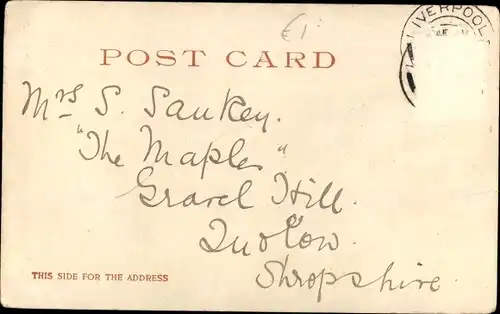 €1
LIVERPOOL
POST CARD
Mrs S. Sankey.
"The Maples"
Gravel Hill.
Ludlow.
Shropshire.
THIS SIDE FOR THE ADDRESS